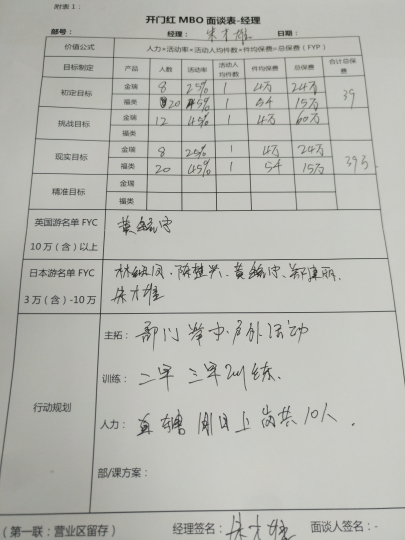 附表 1：
开门红 MBO 面谈表-经理
部号： 经理：朱才雄 日期：
价值公式 人力×活动率×活动人均件数×件均保费=总保费（FYP）
目标制定 产品 人数 活动率 活动人均件数 件均保费 总保费 合计总保费
初定目标 金瑞 8 25% 1 4万 24万 39
福类 20 45% 1 54 15万
挑战目标 金瑞 12 45% 1 4万 60万
福类
现实目标 金瑞 8 25% 1 4万 24万 39万
福类 20 45% 1 54 15万
精准目标 金瑞
福类
英国游名单 FYC 10 万（含）以上 黄
日本游名单 FYC 3 万（含）-10 万 林 凤、陈楚兴、黄 、郑 丽、
朱才雄
行动规划
主拓：部门 集中户外活动
训练：二早 三早训练、
人力：直辖 周月上岗共10人.
部/课方案：
（第一联：营业区留存） 经理签名：朱才雄 面谈人签名：